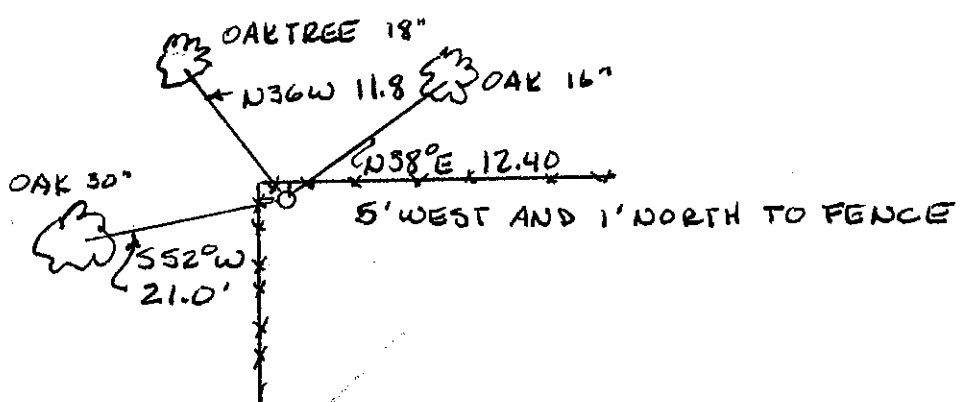 OAKTREE 18"
N36W 11.8
OAK 16"
N38°E 12.40
OAK 30"
5' WEST AND 1' NORTH TO FENCE
S52°W
21.0'